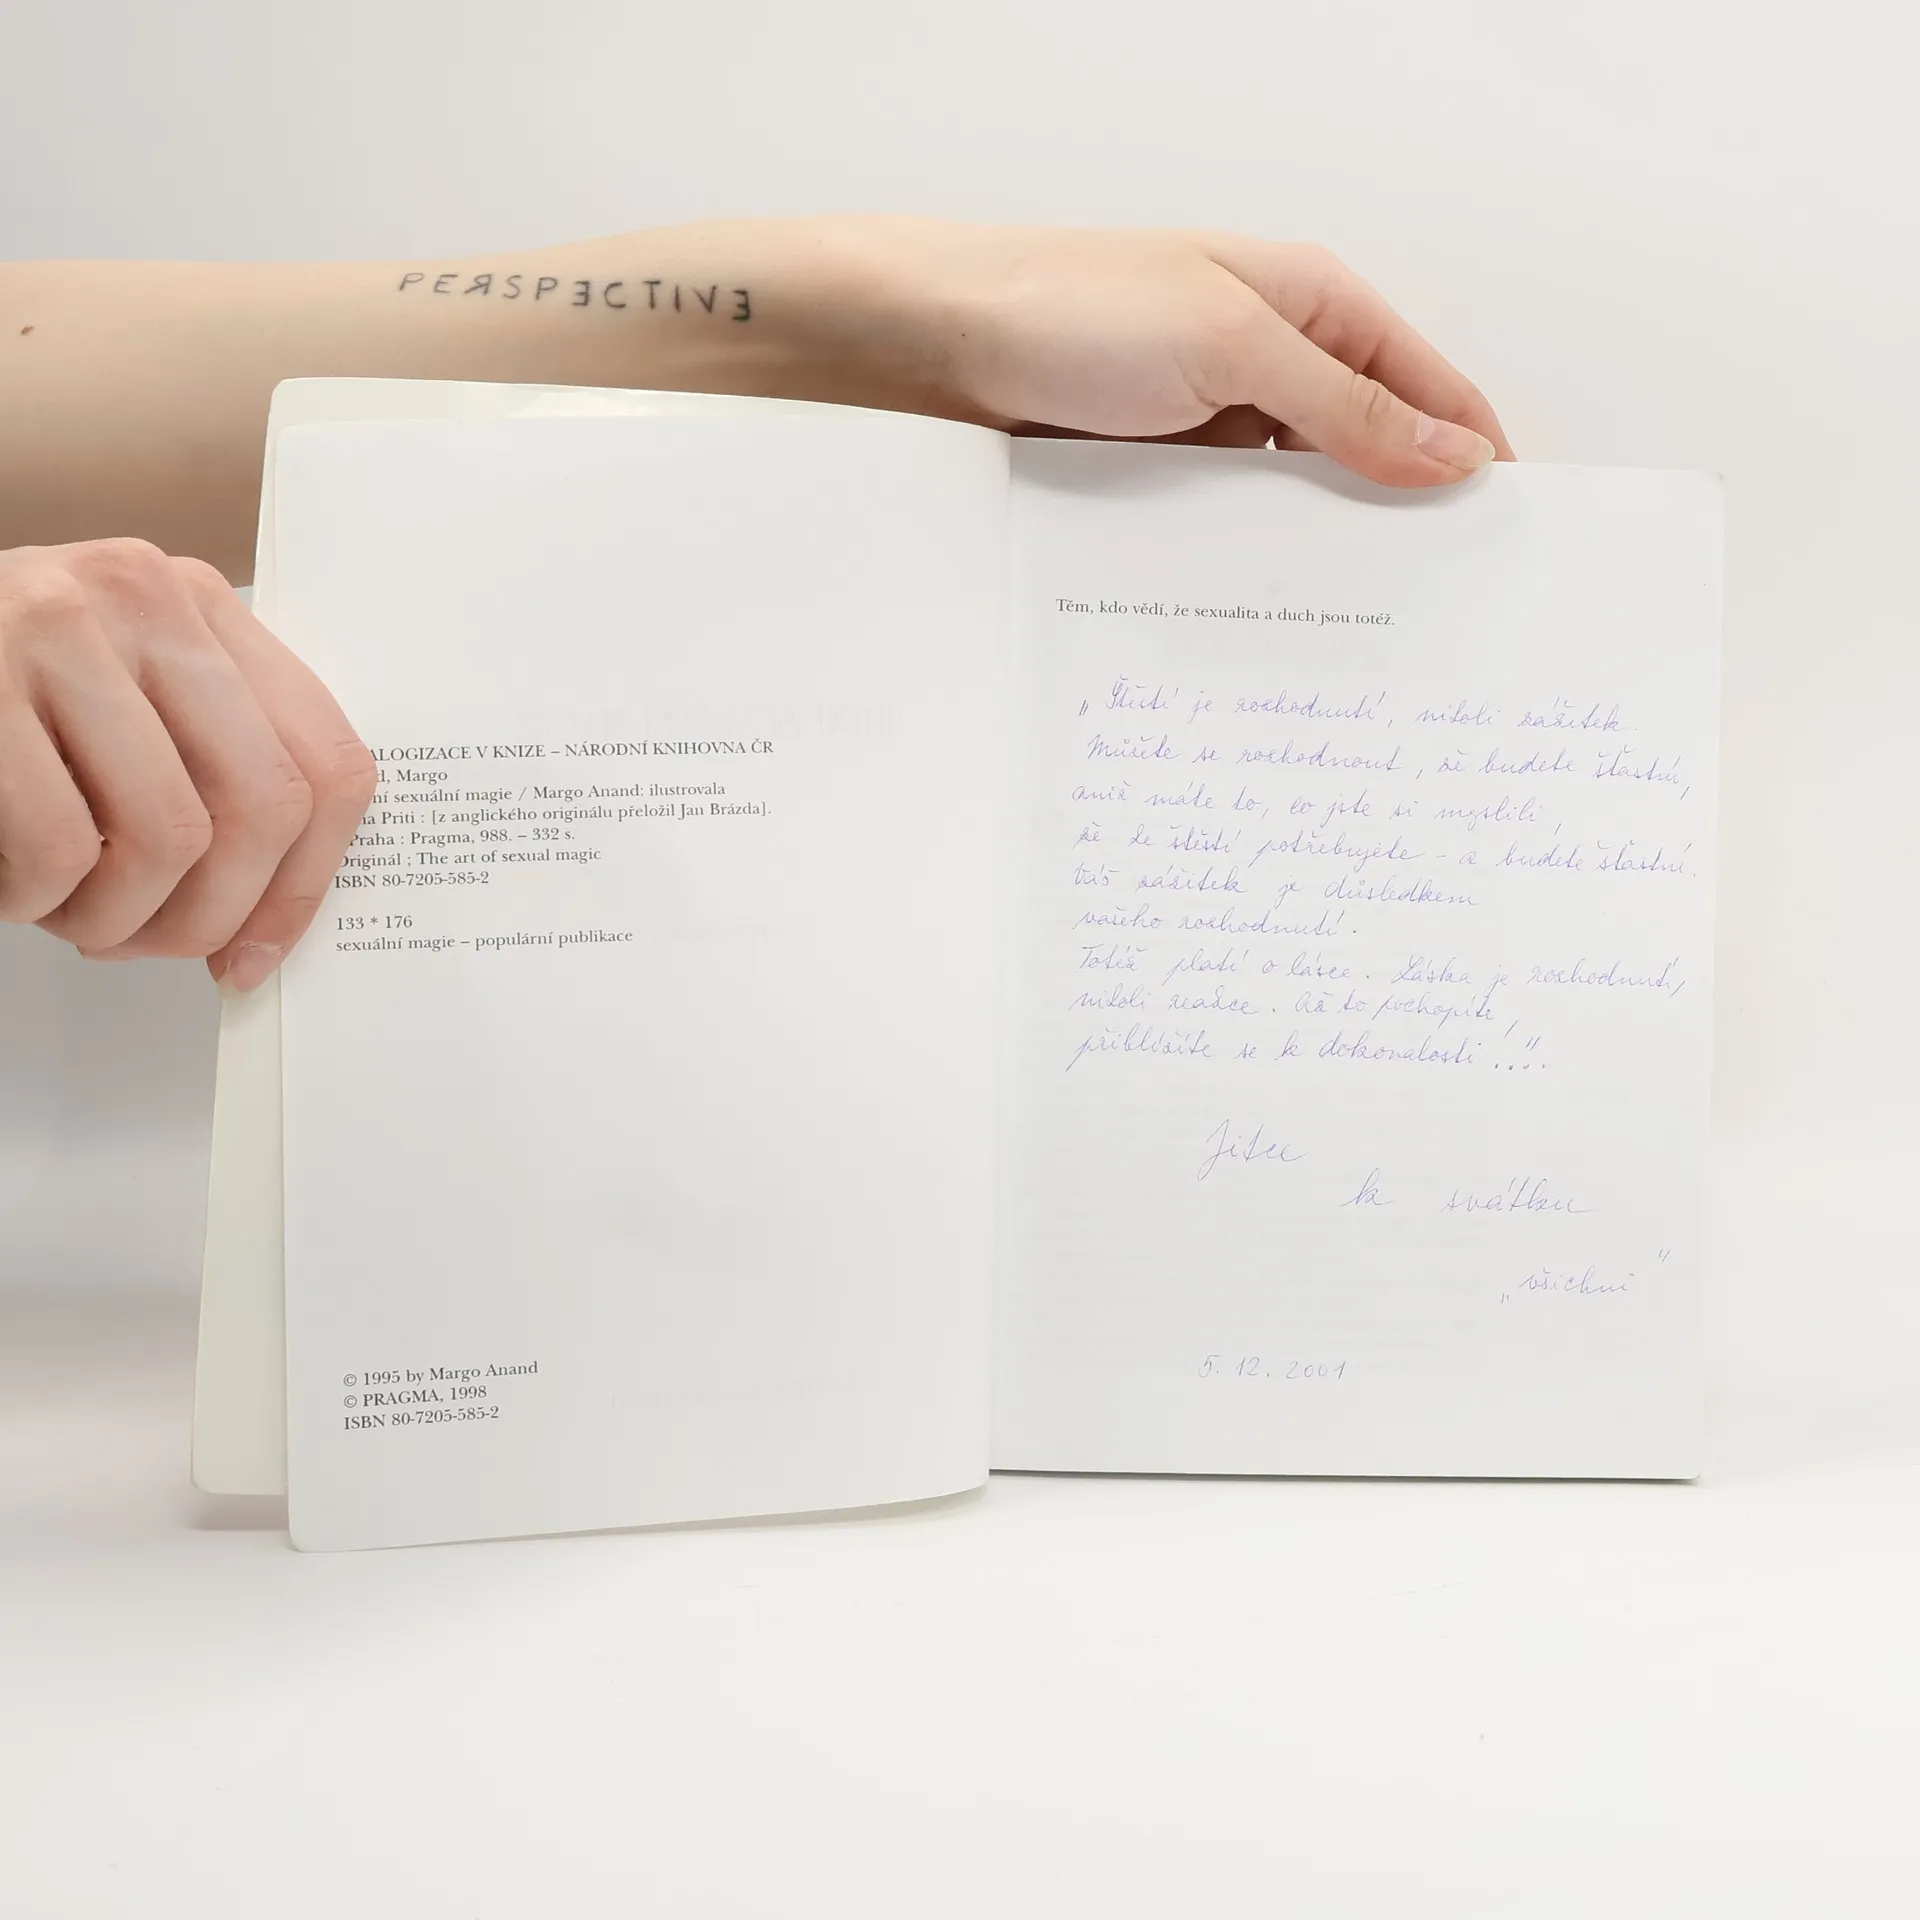 PEЯSPƎCTIVƎ
ALOGIZACE V KNIZE – NÁRODNÍ KNIHOVNA ČR
d, Margo
ní sexuální magie / Margo Anand: ilustrovala
na Priti : [z anglického originálu přeložil Jan Brázda].
Praha : Pragma, 988. – 332 s.
Originál ; The art of sexual magic
ISBN 80-7205-585-2
133 * 176
sexuální magie – populární publikace
© 1995 by Margo Anand
© PRAGMA, 1998
ISBN 80-7205-585-2
Těm, kdo vědí, že sexualita a duch jsou totéž.
„Štěstí je rozhodnutí, nikoli zážitek.
Můžete se rozhodnout, že budete šťastni,
aniž máte to, co jste si mysleli,
že ke štěstí potřebujete – a budete šťastni.
Váš zážitek je důsledkem
vašeho rozhodnutí.
Totéž platí o lásce. Láska je rozhodnutí,
nikoli reakce. Až to pochopíte,
přiblížíte se k dokonalosti!..."
Jitce
k svátku
„všichni"
5. 12. 2001